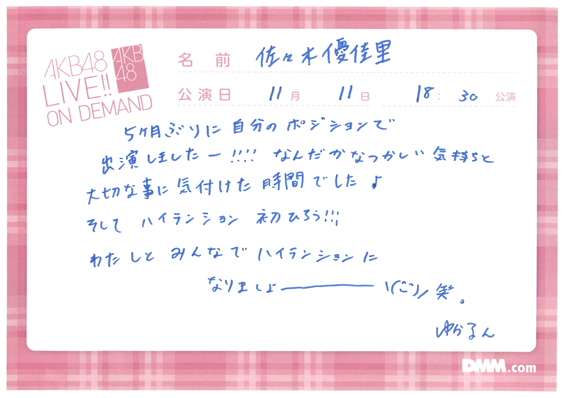 AKB48
LIVE!!
ON DEMAND
AKB
48
名前 佐々木優佳里
公演日 11月 11日 18:30 公演
5ヶ月ぶりに自分のポジションで
出演しましたー!!!! なんだかなつかしい気持ちと
大切な事に気付けた時間でした♪
そして ハイテンション 初ひろう!!!
わたしと みんなで ハイテンションに
なりましょ――――ヽ(ﾟﾟ)ﾉ 笑。
ゆかるん
DMM.com